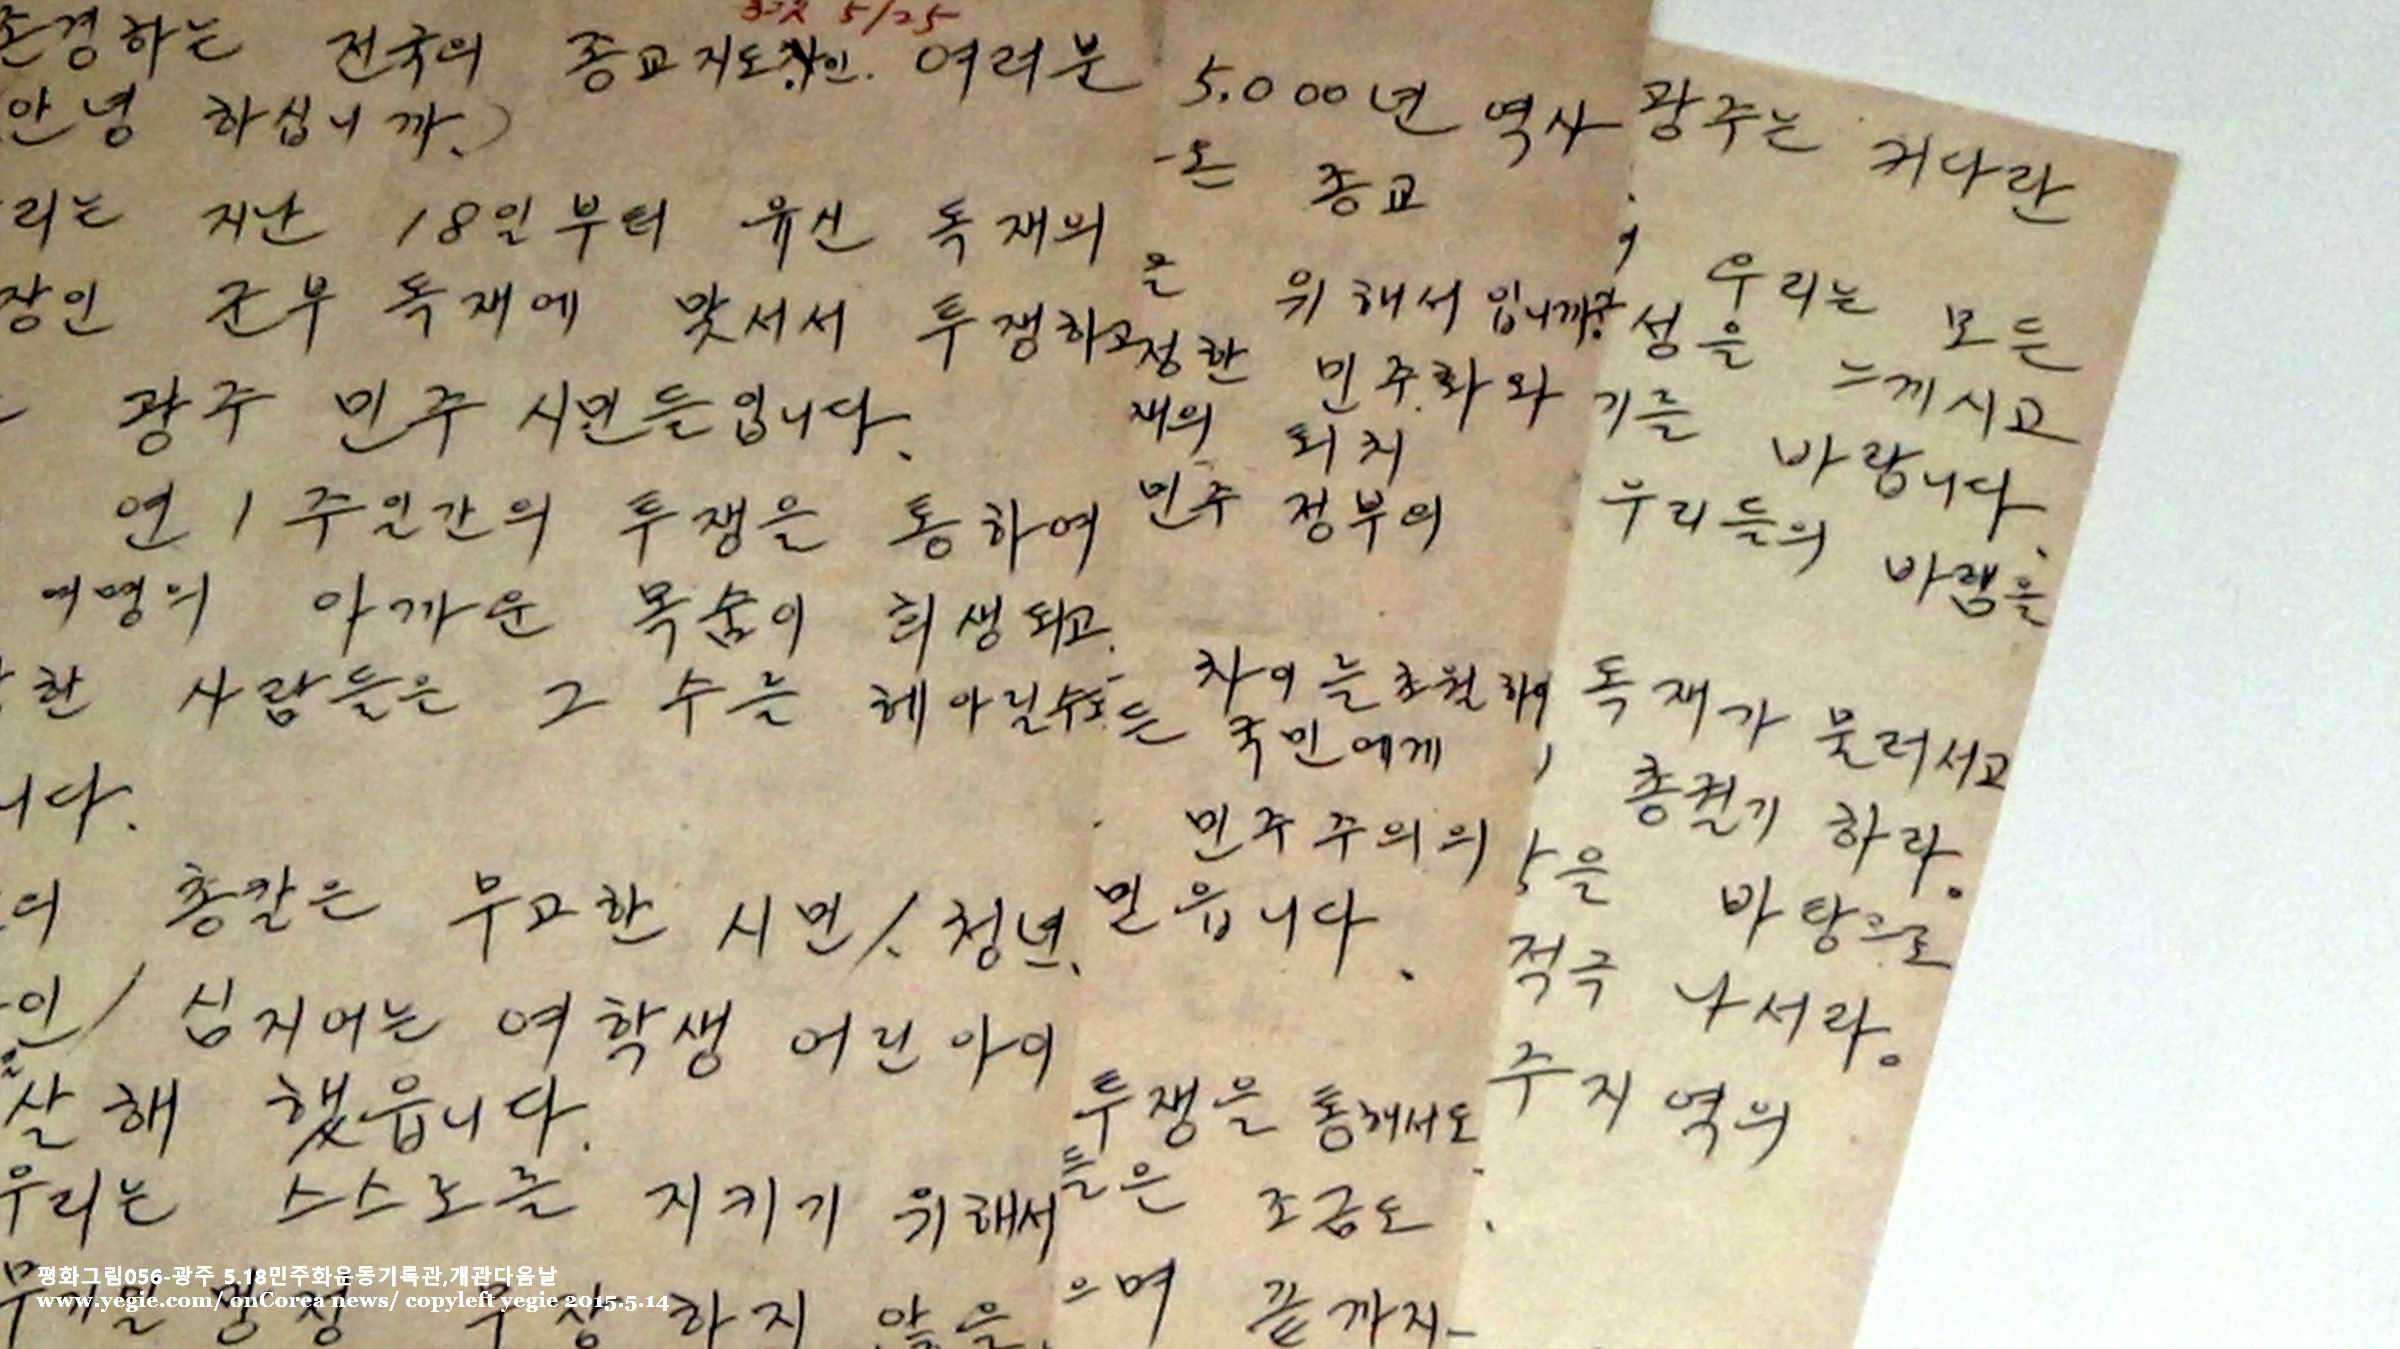 5/25
존경하는 전국의 종교지도자인. 여러분
(안녕 하십니까.)
리는 지난 18일부터 유신 독재의
장인 군부 독재에 맞서서 투쟁하고
광주 민주 시민들입니다.
연 1주일간의 투쟁을 통하여
여명의 아까운 목숨이 희생되고.
한 사람들은 그 수를 헤아릴수도
니다.
의 총칼은 무고한 시민/. 청년.
인/ 심지어는 여학생 어린아이
살해 했읍니다.
우리는 스스로를 지키기 위해서
무장하지 않을
5,000년 역사
온 종교
을 위해서입니까?
정한 민주화와
재의 퇴치
민주 정부의
차이를초월하여
든 국민에게
민주주의의
믿읍니다.
투쟁을 통해서도
들은 조금도
으며 끝까지
광주는 커다란
우리는 모든
성을 느끼시고
기를 바랍니다.
우리들의 바램을
독재가 물러서고
총궐기 하라.
을 바탕으로
적극 나서라.
주지역의
평화그림056-광주 5.18민주화운동기록관,개관다음날
www.yegie.com/ onCorea news/ copyleft yegie 2015.5.14